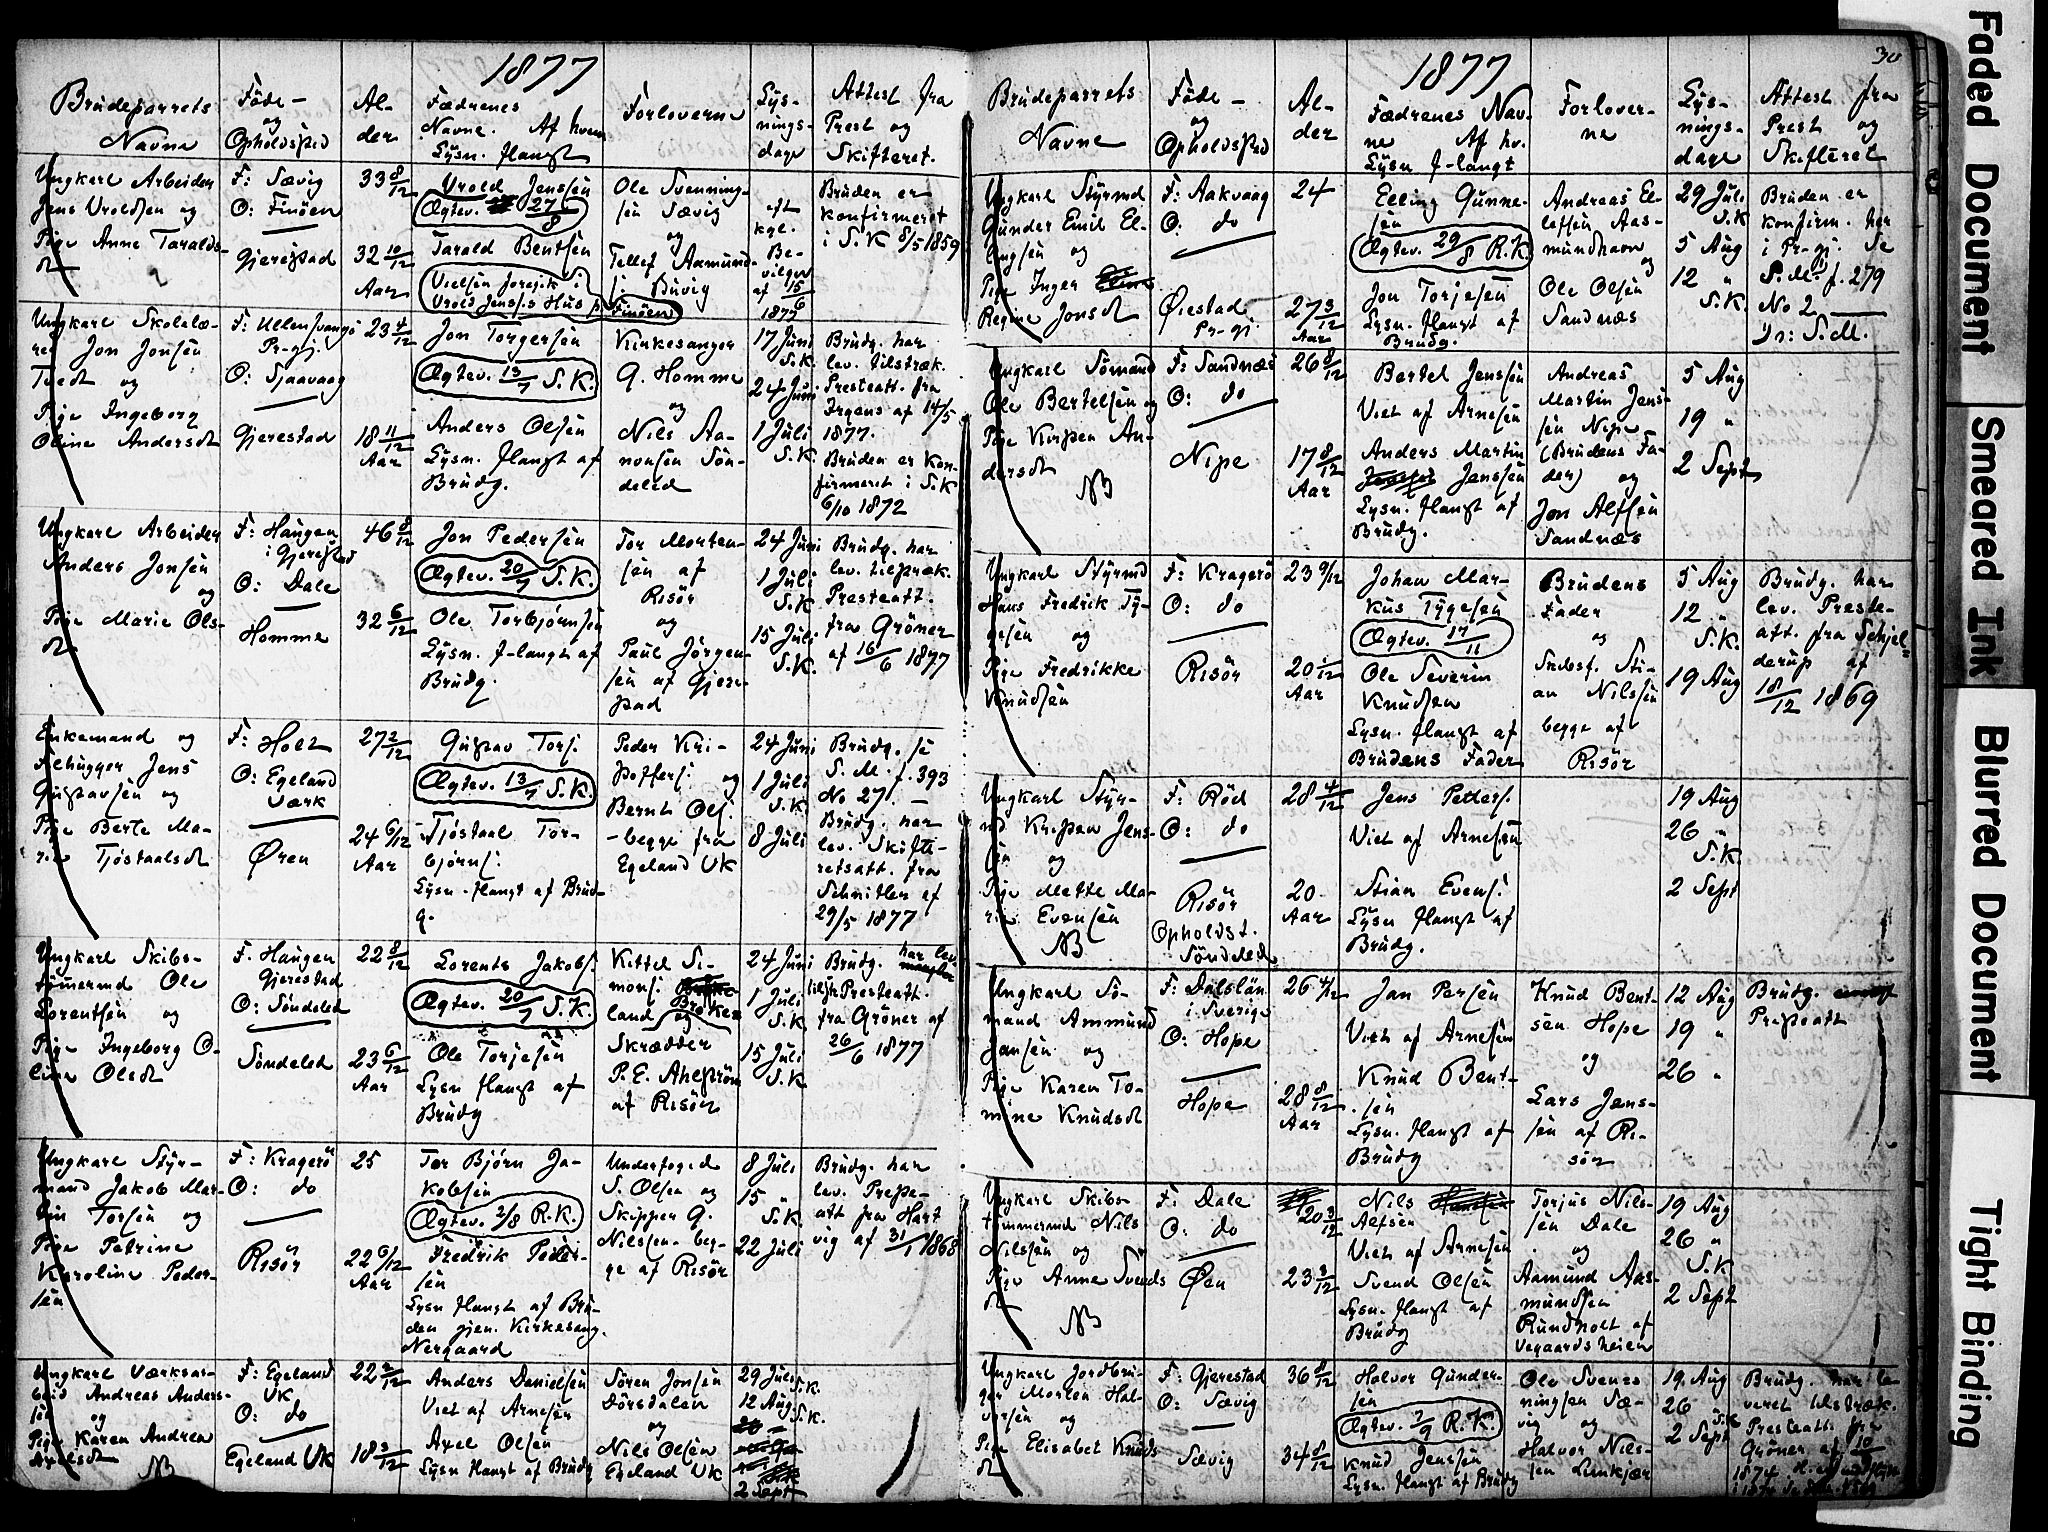 1877
Brudeparrets
Navne
Føde-
og
Opholdssted
Al-
der
Fædrenes
Navne. Af hvem
Lysn. flangt
Forloverne
Lys-
nings-
dage
Attest fra
Prest og
Skifteret.
Ungkarl Arbeider
Jens Vroldsen og
Pige Anne Taralds-
dt
F: Sævig
O: Finöen
Gjerestad
33 8/12
32 10/12
Aar
Vrold Jenssen
Ægtev. 27/8
Tarald Bentsen
Vielsen foregik i
Vrold Jenss's Hus p. Finöen
Ole Svenning-
sen Sævig
og
Tellef Aamund-
s. Buvig
eft
kgl.
Be-
vilgn
af 15/6
1877
Bruden er
konfirmeret
i S.K 8/5 1859
Ungkarl Skolelæ-
rer Jon Jonsen
Tvedt og
Pige Ingeborg
Oline Andersdt
F: Ullensvangs
Pr.gj.
O: Sjaavaag
Gjerestad
23 4/12
18 11/12
Aar
Jon Torgersen
Ægtev. 13/7 S.K.
Anders Olsen
Lysn. flangt af
Brudg.
Kirkesanger
G. Homme
og
Nils Aa-
nonsen Sön-
deled
17 Juni
S.K.
24 Juni
1 Juli
S.K.
Brudg. har
lev. tilstræk.
Presteatt. fra
Irgens af 14/5
1877.
Bruden er kon-
firmeret i S.K
6/10 1872
Ungkarl Arbeider
Anders Jonsen
og
Pige Marie Ols-
dt
F: Haugen
i Gjerestad
O: Dale
Homme
46 8/12
32 6/12
Jon Pedersen
Ægtev. 20/7 S.K.
Ole Torbjörnsen
Lysn. f-langt af
Brudg.
Tor Morten-
sen af
Risör
og
Paul Jörgen-
sen af Gjere-
stad
24 Juni
1 Juli
S.K.
15 Juli
S.K.
Brudg. har
lev. tilstræk.
Presteatt.
fra Gröner
af 16/6 1877
Enkemand og
Kulhugger Jens
Gustavsen og
Pige Berte Ma-
rie Tjöstaalsdt
F: Holt
O: Egeland
Værk
Øren
27 2/12
24 6/12
Aar
Gustav Tors.
Ægtev. 13/7 S.K.
Tjöstaal Tor-
björns.
Lysn. flangt af Brud-
g.
Peder Kri-
stoffers. og
Bernt Ols.
- begge fra
Egeland Vk
24 Juni
1 Juli
S.K
8 Juli
Brudg. se
S. M. f. 393
No 27. -
Brudg. har
lev. Skifte-
retsatt. fra
Schnitler af
29/5 1877
Ungkarl Skibs-
tömermd Ole
Lorentsen og
Pige Ingeborg O-
line Olsdt
F. Haugen
Gjerestad
O: Söndeled
Söndeled
22 8/12
23 6/12
Aar
Lorents Jakobs.
Ægtev. 20/7 S.K.
Ole Torjesen
Lysn flangt af
Brudg
Kittel Si-
mons. Bröke
land og
Skrædder
P. E. Ahlström
af Risör
24 Juni
1 Juli
S.K
15 Juli
S.K
Brudg. har lev
tilstr. Presteatt.
fra Gröner af
26/6 1877
Ungkarl Styr-
mand Jakob Mar-
tin Torsen og
Pige Petrine
Karoline Peder-
sen
F: Kragerö
O: do
Risör
25
22 6/12
Aar
Tor Björn Ja-
kobsen
Ægtev. 2/8 R.K.
Fredrik Peder-
sen
Lysn flangt af Bru-
den gjen. Kirkesang.
Nergaard
Underfoged
S. Olsen og
Skipper G.
Nilssen- beg-
ge af Risör
8 Juli
15 "
S.K.
22 Juli
Brudg. har
lev. Preste-
att fra Hart
vig af 31/1 1868
Ungkarl Værksar-
beid Andreas Anders-
sen og
Pige Karen Andrea
Axelsdt NB
F: Egeland
Vk
O: do
Egeland Vk
22 2/12
18 3/12
Anders Danielsen
Viet af Arnesen
Axel Olsen
Lysn flangt af Brudg
Sören Jonsen
Dörsdalen
og
Nils Olsen
Egeland Vk
29 Juli
S.K.
12 Aug
S.K.
2 Sept
30
1877
Brudeparrets
Navne
Föde-
og
Opholdssted
Al-
der
Fædrenes Nav-
ne Af hv.
Lysn f-langt
Forlover-
ne
Lys-
nings-
dage
Attest fra
Prest og
Skifteret
Ungkarl Styrmd
Gunder Emil El-
lingsen og
Pige Inger
Regine Jonsdt
F: Aakvaag
O: do
Øiestad
Pr-gj.
24
27 3/12
Aar
Elling Gunne-
sen
Ægtev. 29/8 R.K.
Jon Torjesen
Lysn. flangt af
Brudg.
Andreas El-
lefsen Aas-
mundhavn
og
Ole Olsen
Sandnæs
29 Juli
S.K
5 Aug
12 "
S.K.
Bruden er
konfirm. her
i Pr-gj. se
S.M. f. 279
No 2
Ungkarl Sömand
Ole Bertelsen og
Pige Kirsten An-
dersdt
NB
F: Sandnæs
O: do
Nipe
26 8/12
17 8/12
Aar
Bertel Jenssen
Viet af Arnesen
Anders Martin
Jenssen
Lysn. flangt af
Brudg.
Andreas
Martin Jens-
sen Nipe
(Brudens Fa-
der) og
Jon Alfsen
Sandnæs
5 Aug
19 "
2 Sept
Ungkarl Styrmd
Hans Fredrik Ty-
gesen og
Pige Fredrikke
Knudsen
F: Kragerö
O: do
Risör
23 9/12
20 1/12
Aar
Johan Mar-
kus Tygesen
Ægtev. 17/11
Ole Severin
Knudsen
Lysn. flangt af
Brudens Fader
Brudens
Fader
og
Sti-
an Nilssen
begge af
Risör
5 Aug
12 "
S.K.
19 Aug
Brudg. har
lev. Preste-
att. fra Schjel-
derup af
18/12 1869
Ungkarl Styr-
md Kristen Jens-
sen og
Pige Mette Ma-
rie Evensen
NB
F: Röd
O: do
Risör
Opholdst.
Söndeled
28 4/12
20
Aar
Jens Petters.
Viet af Arnesen
Stian Evens.
Lysn flangt af
Brudg.
19 Aug
26 "
S.K.
2 Sept
Ungkarl Sö-
mand Ammund
Jansen og
Pige Karen To-
mine Knudsdt
F: Dalslan
i Sverige
O: Hope
Hope
26 4/12
28 8/12
Aar
Jan Persen
Viet af Arnesen
Knud Bent-
sen
Lysn. flangt af
Brudg
Knud Bent-
sen Hope
og
Lars Jens-
sen af Ri-
sör
12 Aug
19 "
26 "
Brudg.
Presteatt
Ungkarl Skibs-
tømmermd Nils
Nilssen og
Pige Anne Svends
dt
NB
F: Dale
O: do
Øen
20 3/12
23 3/12
Nils
Alfsen
Viet af Arnesen
Svend Olsen
Lysn. flangt af
Brudg
Torjus Nils-
sen Dale
og
Aamund Aas-
mundsen
Rundholt af
Vegaardsheien
19 Aug
26 "
S.K
2 Sept
Ungkarl Jordbru-
ger Morten Hal-
vorsen og
Pige Elisabet Knuds
dt
F: Gjerestad
O: Sævig
Sævig
36 8/12
34 8/12
Halvor Gunder-
sen
Ægtev. 7/9 R.K.
Knud Jenssen
Lysn. flangt af Brudg
Ole Svenn-
ningsen Sæ-
vig og
Halvor Nils-
sen Lunkjær
19 Aug
26 "
S.K
2 Sept
Brudg. har le-
veret tilstræk.
Presteatt. fra
Gröner af 10/
1874.
Faded Document
Smeared Ink
Blurred Document
Tight Binding